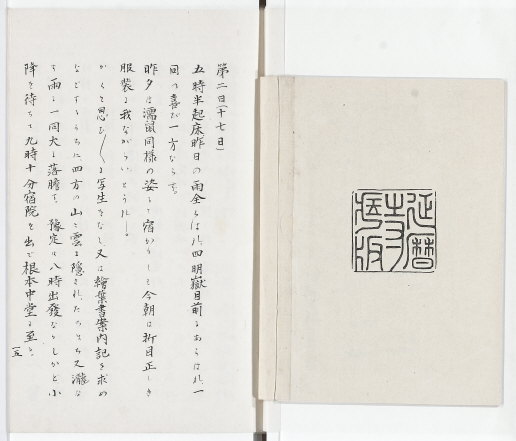 延暦
寺
蔵版
第二日(十七日)
五時半起床昨日の雨全くはれ、四明嶽目前にあらはれ、一
同の喜び一方ならず。
昨夕は濡鼠同様の姿にて宿かりしも今朝は折目正しき
服装に我ながらいとうれし。
かくて思ひ〱に写生をなし又は繪葉書案内記を求め
などするうちに、四方の山に雲に隠されたちまち又瀧な
す雨に一同大に落膽す、豫定は八時出發なりしかど小
降を待ちて九時十分宿院を出で根本中堂に至る。
一五